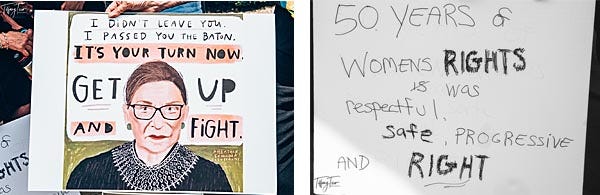 I DIDN'T LEAVE YOU.
I PASSED YOU THE BATON.
IT'S YOUR TURN NOW.
GET UP
AND FIGHT.
GHTS
50 YEARS of
WOMENS RIGHTS
is was
respectful,
safe, PROGRESSIVE
AND RIGHT